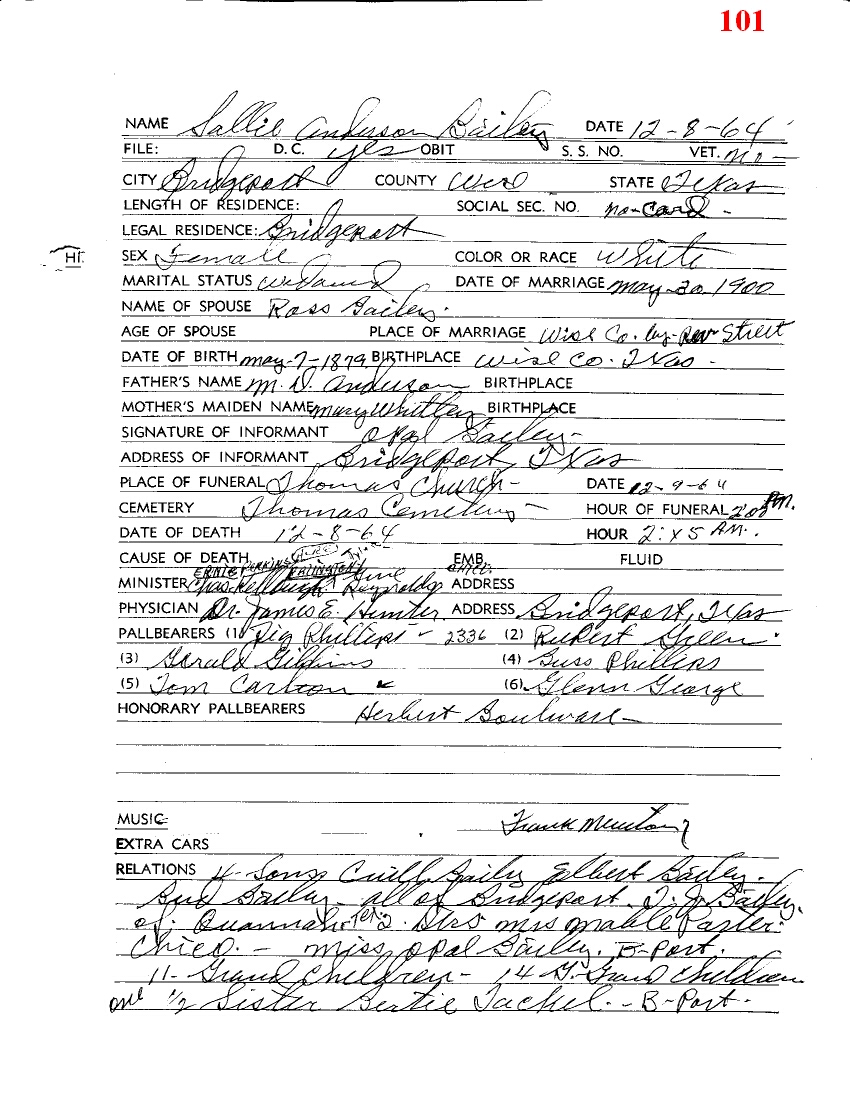 101
NAME Sallie Anderson Bailey DATE 12-8-64
FILE: D.C. yes OBIT S. S. NO. VET. no
CITY Bridgeport COUNTY Wise STATE Texas
LENGTH OF RESIDENCE: SOCIAL SEC. NO. no-Card -
LEGAL RESIDENCE: Bridgeport
HI
SEX Female COLOR OR RACE White
MARITAL STATUS Widowed DATE OF MARRIAGE may-20-1900
NAME OF SPOUSE Ross Bailey.
AGE OF SPOUSE PLACE OF MARRIAGE Wise Co. by-Rev Street
DATE OF BIRTH may-7-1879 BIRTHPLACE Wise Co. Texas -
FATHER'S NAME M. D. Anderson BIRTHPLACE
MOTHER'S MAIDEN NAME mary Whitley BIRTHPLACE
SIGNATURE OF INFORMANT Opal Bailey-
ADDRESS OF INFORMANT Bridgeport, Texas
PLACE OF FUNERAL Thomas Church - DATE 12-9-64
CEMETERY Thomas Cemetery - HOUR OF FUNERAL 2:00 PM.
DATE OF DEATH 12-8-64 HOUR 2:45 AM.
CAUSE OF DEATH EMB. FLUID
ERNIE PERKINS
MINISTER Chas. Gene Reynolds ADDRESS
PHYSICIAN Dr. James E. Hunter ADDRESS Bridgeport, Texas
PALLBEARERS (1) Pig Phillips - 2336 (2) Rupert Green.
(3) Gerald Gibbins (4) Buss Phillips
(5) Tom Carlton (6) Glenn George
HONORARY PALLBEARERS Herbert Boulware
MUSIC: Frank
EXTRA CARS
RELATIONS 4 Sons Bailey Elbert Bailey.
Bud Bailey all of Bridgeport. T. J. Bailey.
of. Quannah, Tex. 2 Dtrs mrs mable
Chico. - miss, Opal Bailey. B-Port.
11- Grand Children - 14 G. Grand Children
one 1/2 Sister Bertie - B-Port.